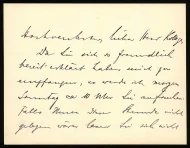 Hochverehrter, lieber Herr Kollege,
Da Sie sich so freundlich
bereit erklärt haben mich zu
empfangen, so werde ich morgen
Sonntag ca 10 Uhr Sie aufsuchen
Falls Ihnen diese Stunde nicht
gelegen wäre, Sie ich nicht